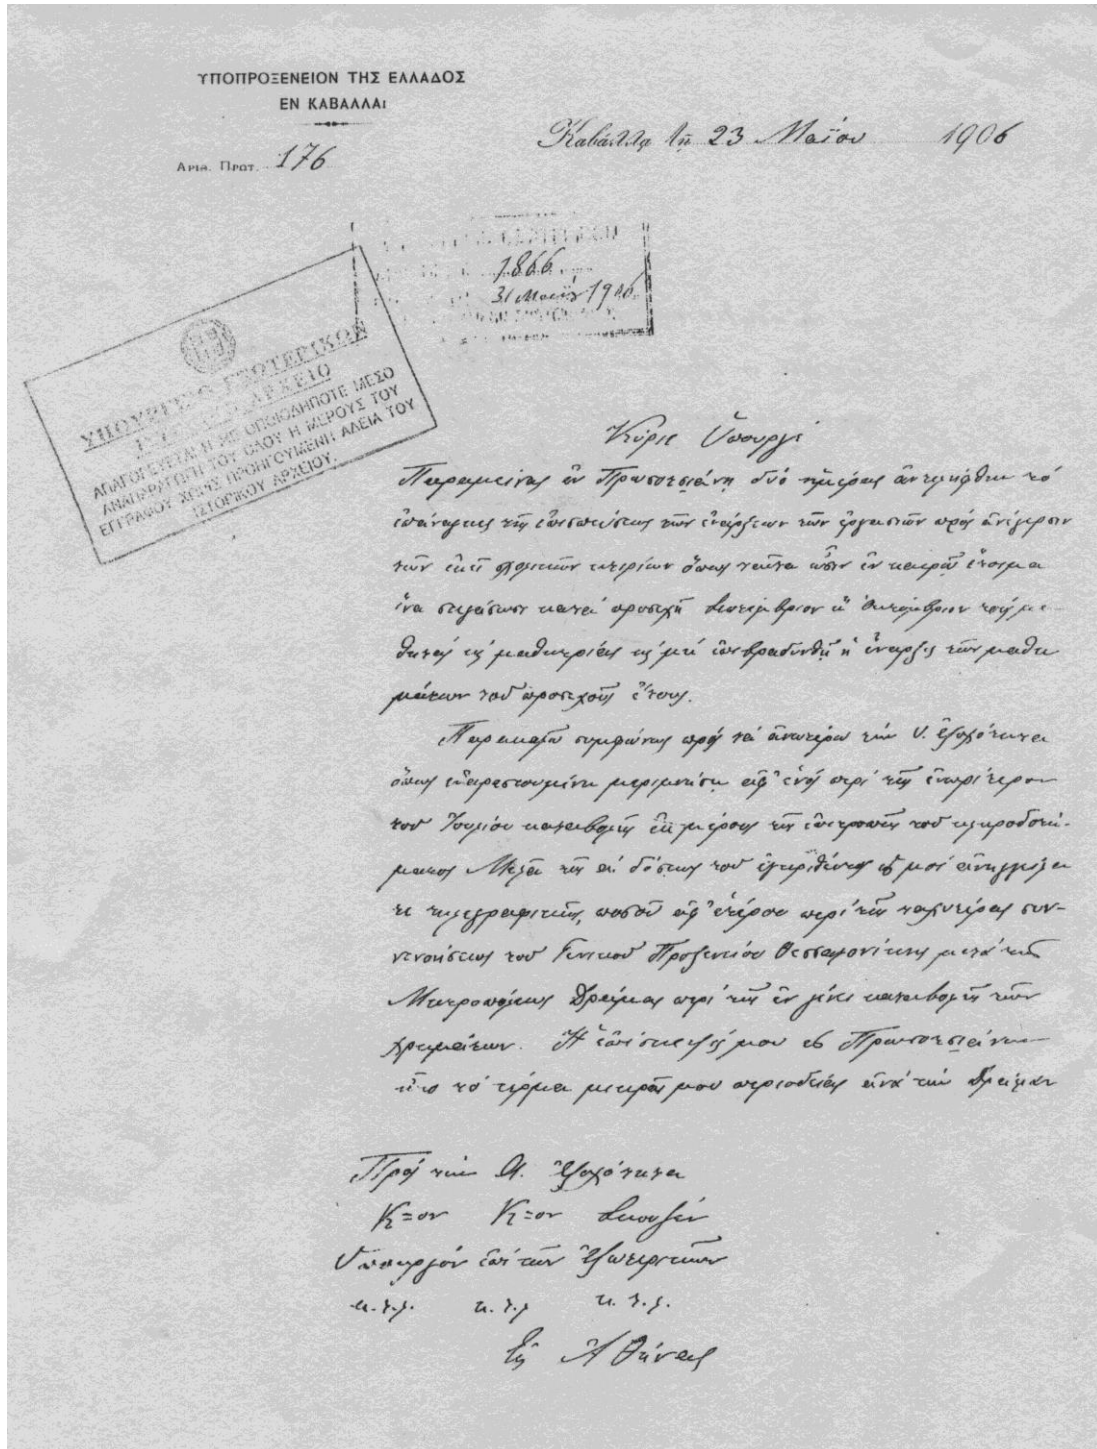 ΥΠΟΠΡΟΞΕΝΕΙΟΝ ΤΗΣ ΕΛΛΑΔΟΣ
ΕΝ ΚΑΒΑΛΛΑι
Καβάλλα τῇ 23 Μαΐου 1906
Αριθ. Πρωτ. 176
1866
31 Μαΐου 1906
ΥΠΟΥΡΓΕΙΟ ΕΞΩΤΕΡΙΚΩΝ
ΙΣΤΟΡΙΚΟ ΑΡΧΕΙΟ
ΑΠΑΓΟΡΕΥΕΤΑΙ Η ΜΕ ΟΠΟΙΟΔΗΠΟΤΕ ΜΕΣΟ
ΑΝΑΠΑΡΑΓΩΓΗ ΤΟΥ ΟΛΟΥ Η ΜΕΡΟΥΣ ΤΟΥ
ΕΓΓΡΑΦΟΥ ΧΩΡΙΣ ΠΡΟΗΓΟΥΜΕΝΗ ΑΔΕΙΑ ΤΟΥ
ΙΣΤΟΡΙΚΟΥ ΑΡΧΕΙΟΥ.
Κύριε Ὑπουργέ
Παραμείνας ἐν Πρωσοτσιάνῃ δύο ἡμέρας ἀντελήφθην τὸ
ἐπάναγκες τῆς ἐπισπεύσεως τῶν ἐνάρξεων τῶν ἐργασιῶν πρὸς ἀνέγερσιν
τῶν ἐκεῖ σχολικῶν κτιρίων ὅπως ταῦτα ὦσιν ἐν καιρῷ ἕτοιμα
ἵνα στεγάσωσι κατὰ προσεχῆ Σεπτέμβριον ἢ Ὀκτώμβριον τοὺς μα-
θητὰς καὶ μαθητρίας καὶ μὴ ἐπιβραδυνθῇ ἡ ἔναρξις τῶν μαθη
μάτων τοῦ προσεχοῦς ἔτους.
Παρακαλῶ συμφώνως πρὸς τὰ ἀνωτέρω τὴν Υ. Ἐξοχότητα
ὅπως εὐαρεστουμένη μεριμνήσῃ ἀφ' ἑνὸς περὶ τῆς ἐνωρίτερον
τοῦ Ἰουλίου καταβολῆς ἐκ μέρους τῆς ἐπιτροπῆς τοῦ κληροδοτή-
ματος Μελᾶ τῆς αʹ δόσεως τοῦ ἐγκριθέντος ὡς μοὶ ἀνηγγείλα
τε τηλεγραφικῶς, ποσοῦ ἀφ' ἑτέρου περὶ τῆς ταχυτέρας συν-
νενοήσεως τοῦ Γενικοῦ Προξενείου Θεσσαλονίκης μετὰ τῆς
Μητροπόλεως Δράμας περὶ τῆς ἐν γένει καταβολῆς τῶν
χρημάτων. Ἡ ἐπίσκεψίς μου εἰς Πρωσοτσιάνην
τὸ τέρμα μικρᾶς μου περιοδείας ἀνὰ τὴν Δράμαν
Πρὸς τὴν Α. Ἐξοχότητα
Κ=ον Κ=ον Σκουζὲν
Ὑπουργὸν ἐπὶ τῶν Ἐξωτερικῶν
κ.τ.λ. κ.τ.λ κ.τ.λ.
Εἰς Ἀθήνας